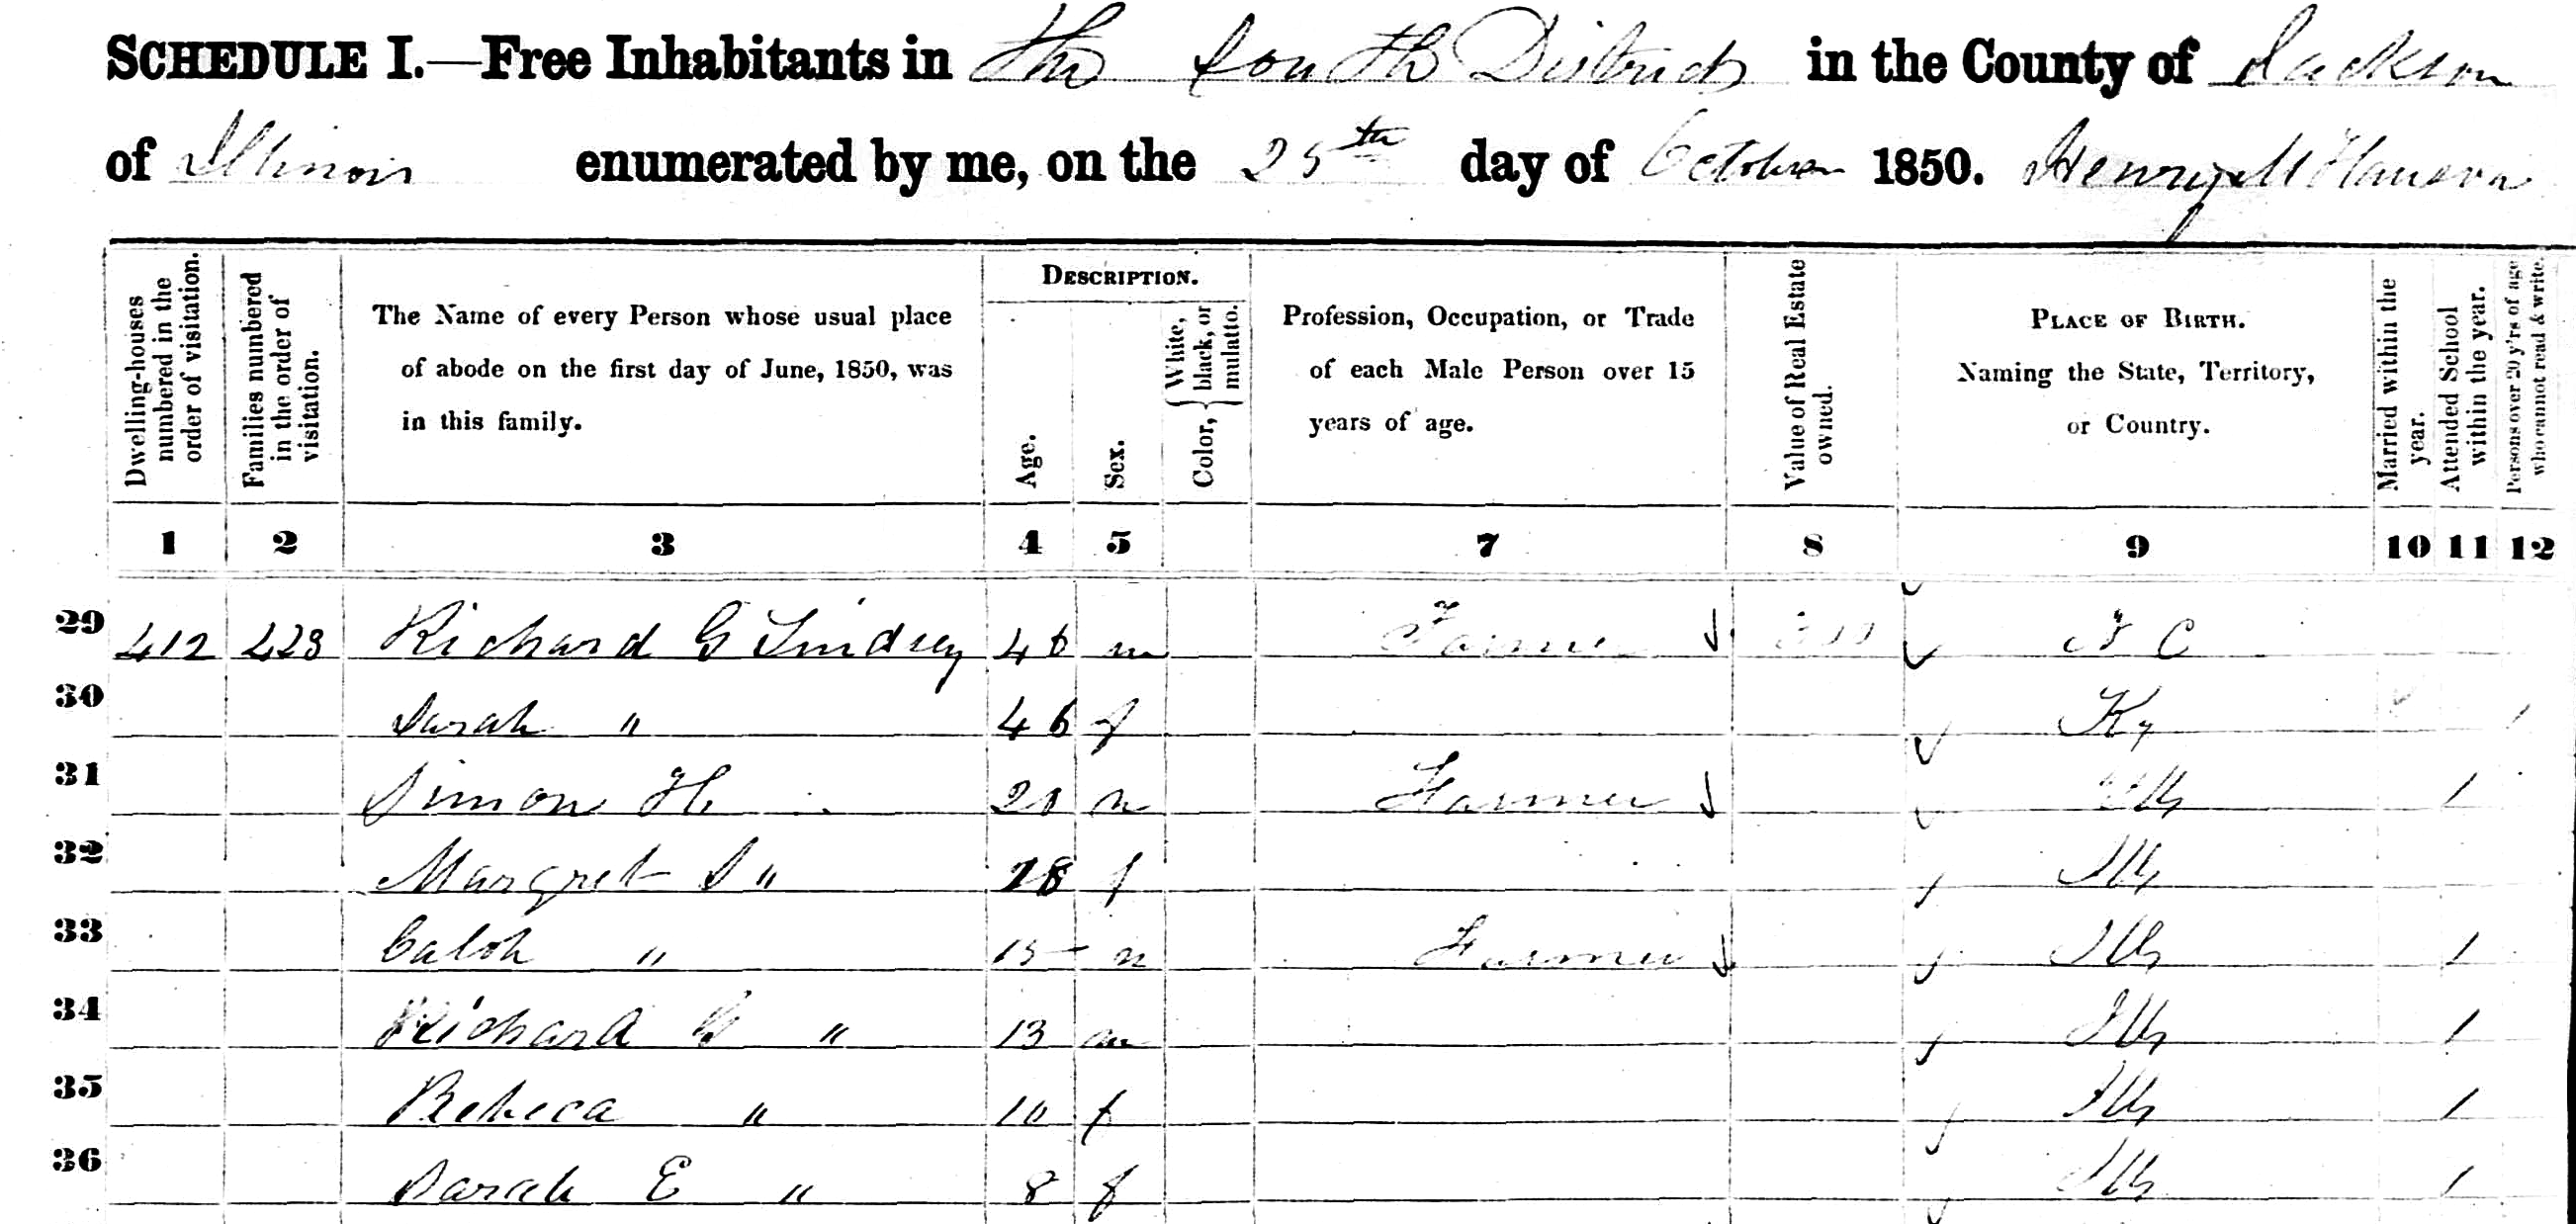 SCHEDULE I.—Free Inhabitants in the South District in the County of Jackson
of Illinois enumerated by me, on the 25th day of October 1850. Henry M Hanson
Dwelling-houses numbered in the order of visitation.
Families numbered in the order of visitation.
The Name of every Person whose usual place of abode on the first day of June, 1850, was in this family.
DESCRIPTION.
Age.
Sex.
Color, { White, black, or mulatto.
Profession, Occupation, or Trade of each Male Person over 15 years of age.
Value of Real Estate owned.
PLACE OF BIRTH.
Naming the State, Territory, or Country.
Married within the year.
Attended School within the year.
Persons over 20 y'rs of age who cannot read & write.
1 2 3 4 5 7 8 9 10 11 12
29 412 423 Richard G Lindsey 46 m Farmer N C
30 Sarah " 46 f Ky /
31 Simon H 20 m Farmer Ills /
32 Margret S " 18 f Ills
33 Caleb " 15 m Farmer Ills /
34 Richard G " 13 m Ills /
35 Rebeca " 10 f Ills /
36 Sarah E " 8 f Ills /